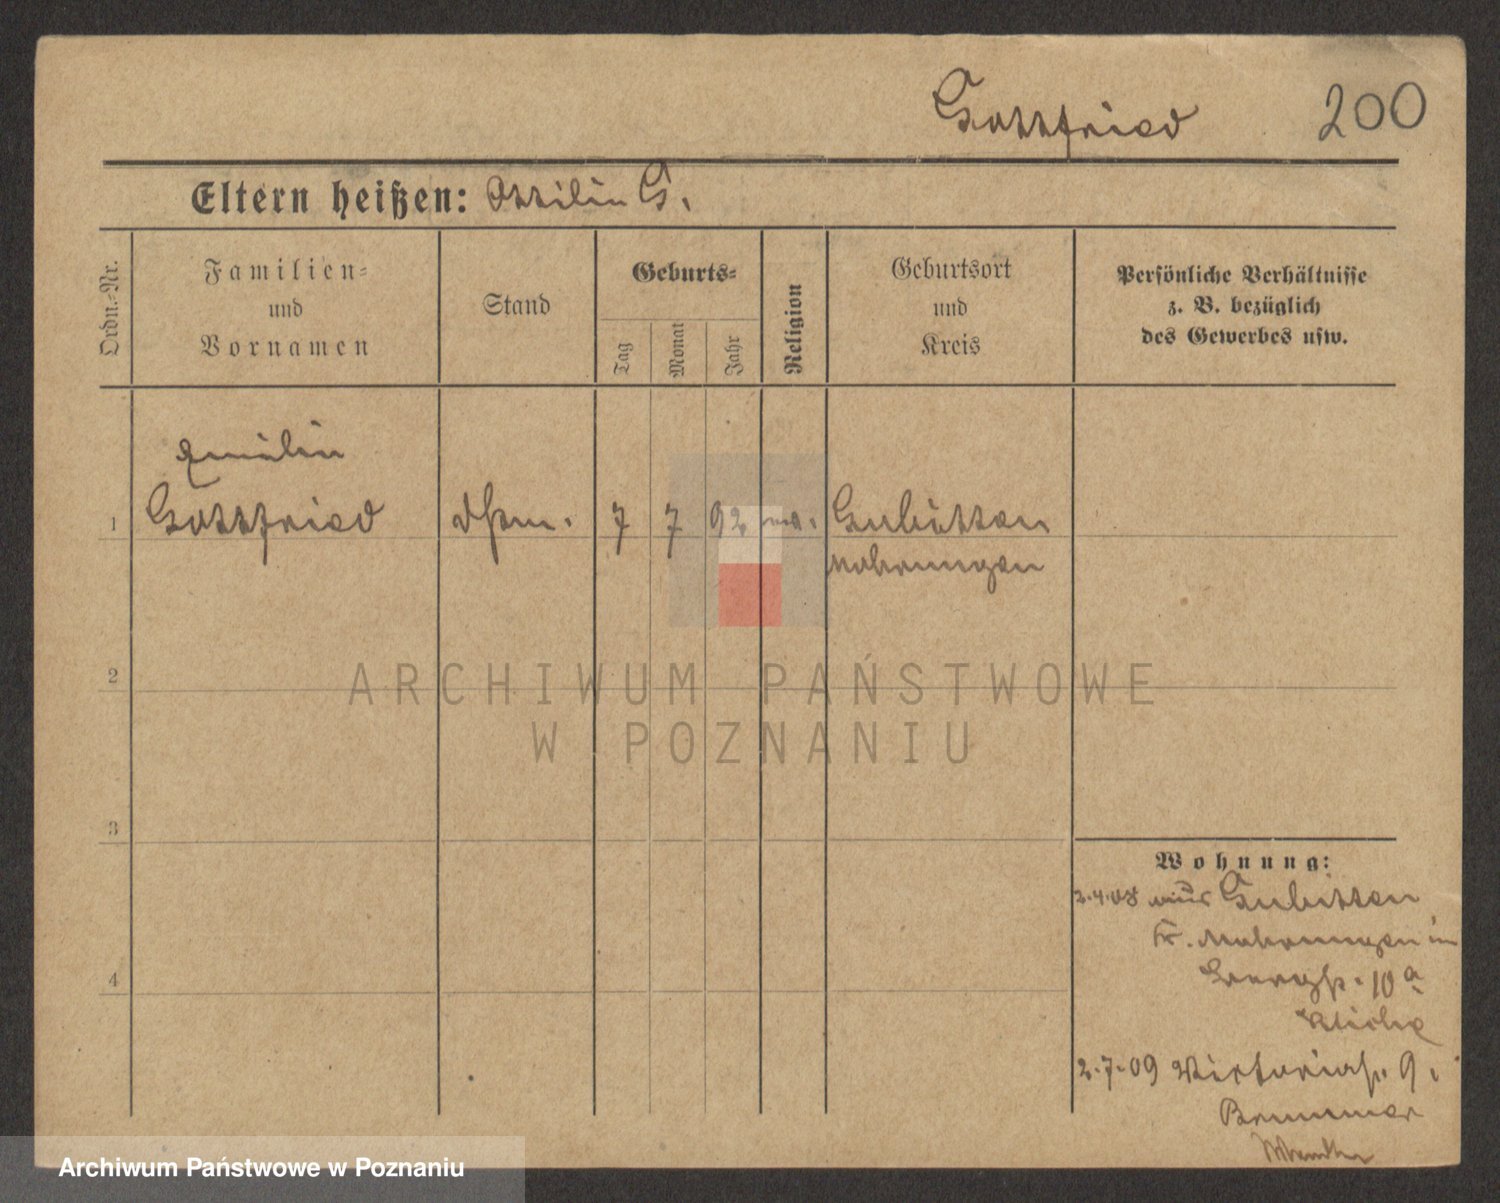 Gottfried 200
Eltern heißen: Ottilie G.
Ordn.-Nr.
Familien-
und
Vornamen
Stand
Geburts-
Tag
Monat
Jahr
Religion
Geburtsort
und
Kreis
Persönliche Verhältnisse
z. B. bezüglich
des Gewerbes usw.
Emilie
1 Gottfried 7 7 92 Gubitten
Mohrungen
ARCHIWUM PAŃSTWOWE
W POZNANIU
2
3
4
Wohnung:
2.4.08 aus Gubitten
Kr. Mohrungen in
10a
2.7.09 Viktoriastr. 9.
Brummer
Archiwum Państwowe w Poznaniu